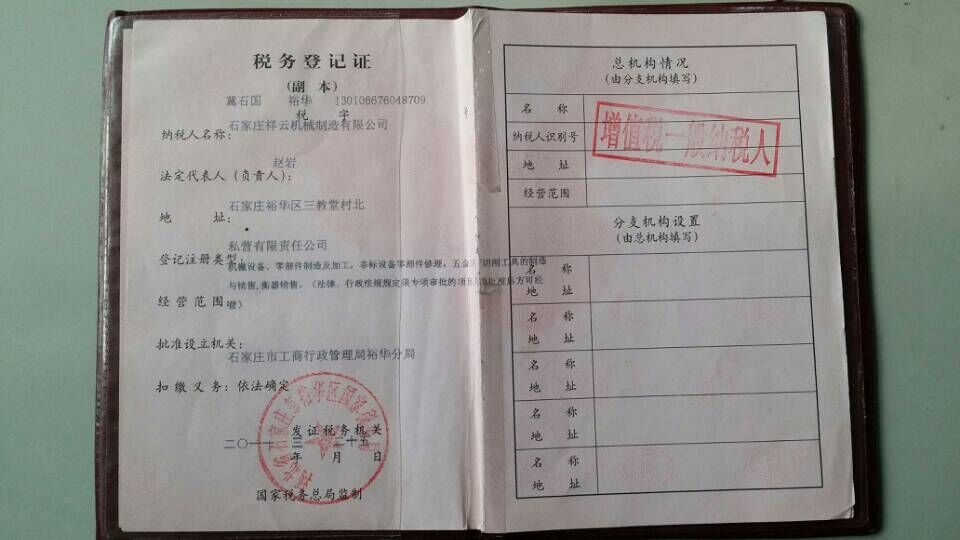 税务登记证
(副 本)
冀石国 裕华 130106676048709
税 字 号
纳税人名称:石家庄祥云机械制造有限公司
赵岩
法定代表人(负责人):
地 址:石家庄裕华区三教堂村北
私营有限责任公司
登记注册类型:
机械设备、零部件制造及加工,非标设备零部件修理,五金 切削工具的制造
与销售,衡器销售。(法律、行政法规规定须专项审批的项目 批准后方可经
经营范围:营)
批准设立机关:
石家庄市工商行政管理局裕华分局
扣缴义务:依法确定
发证税务机关
二〇一一 三 二十九
年 月 日
国家税务总局监制
总机构情况
(由分支机构填写)
名 称
纳税人识别号
地 址
经营范围
增值税一般纳税人
分支机构设置
(由总机构填写)
名 称
地 址
名 称
地 址
名 称
地 址
名 称
地 址
名 称
地 址